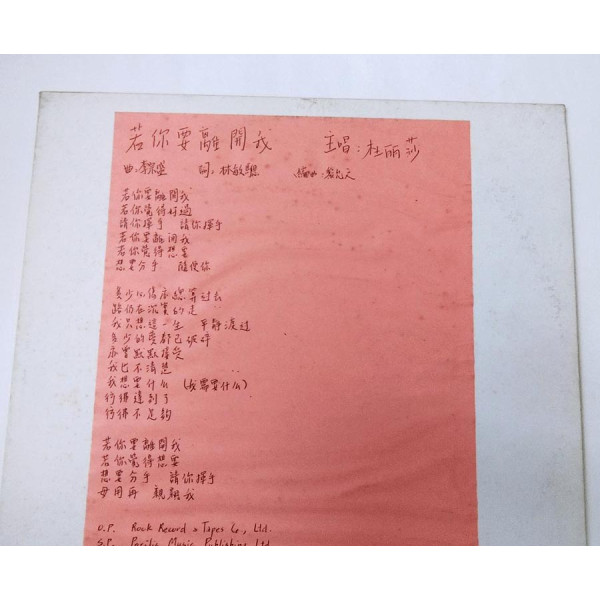 若你要離開我 主唱:杜丽莎
曲: 詞:林敏驄 編曲:
若你要離開我
若你覺得好過
請你揮手 請你揮手
若你要離開我
若你覺得想要
想要分手 隨便你
多少心傷亦總算过去
路仍在沉實的走
我只想這一生 平靜渡过
多少的愛都已破碎
亦要默默接受
我也不清楚
我想要什么 (我需要什么)
彷彿遠到了
彷彿不足夠
若你要離開我
若你覺得想要
想要分手 請你揮手
毋用再 親親我
O.P. Rock Record & Tapes Co., Ltd.
S.P. Pacific Music Publishing Ltd.